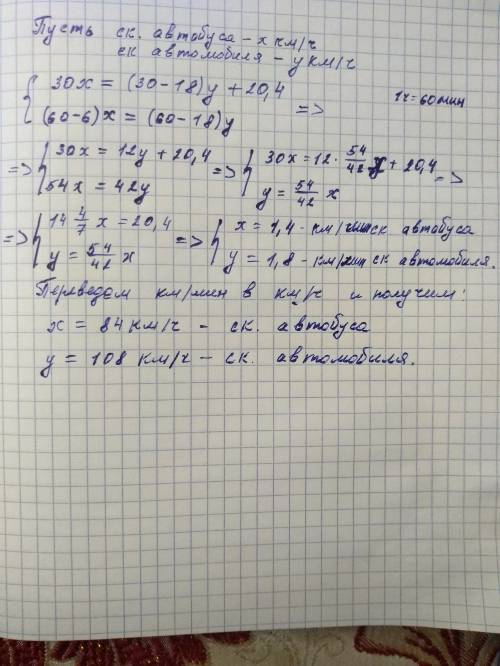 Пусть ск. автобуса – x км/ч
ск автомобиля – y км/ч
{ 30x = (30-18)y + 20,4
(60-6)x = (60-18)y =>
1ч = 60 мин
=> { 30x = 12y + 20,4
54x = 42y
=> { 30x = 12 · 54/42 x + 20,4
y = 54/42 x =>
=> { 14 4/7 x = 20,4
y = 54/42 x
=> { x = 1,4 - км/мин ск автобуса
y = 1,8 - км/мин ск автомобиля.
Переведом км/мин в км/ч и получим:
x = 84 км/ч – ск. автобуса
y = 108 км/ч – ск. автомобиля.